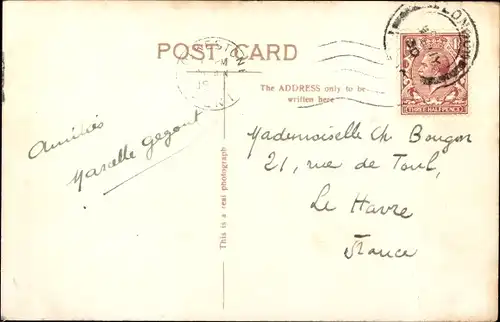 POST CARD
LONDON
The ADDRESS only to be
written here
THREE HALF PENCE
Amitiés
Marcelle Gegout
This is a real photograph
Mademoiselle Ch Bougon
21, rue de Toul,
Le Havre
France